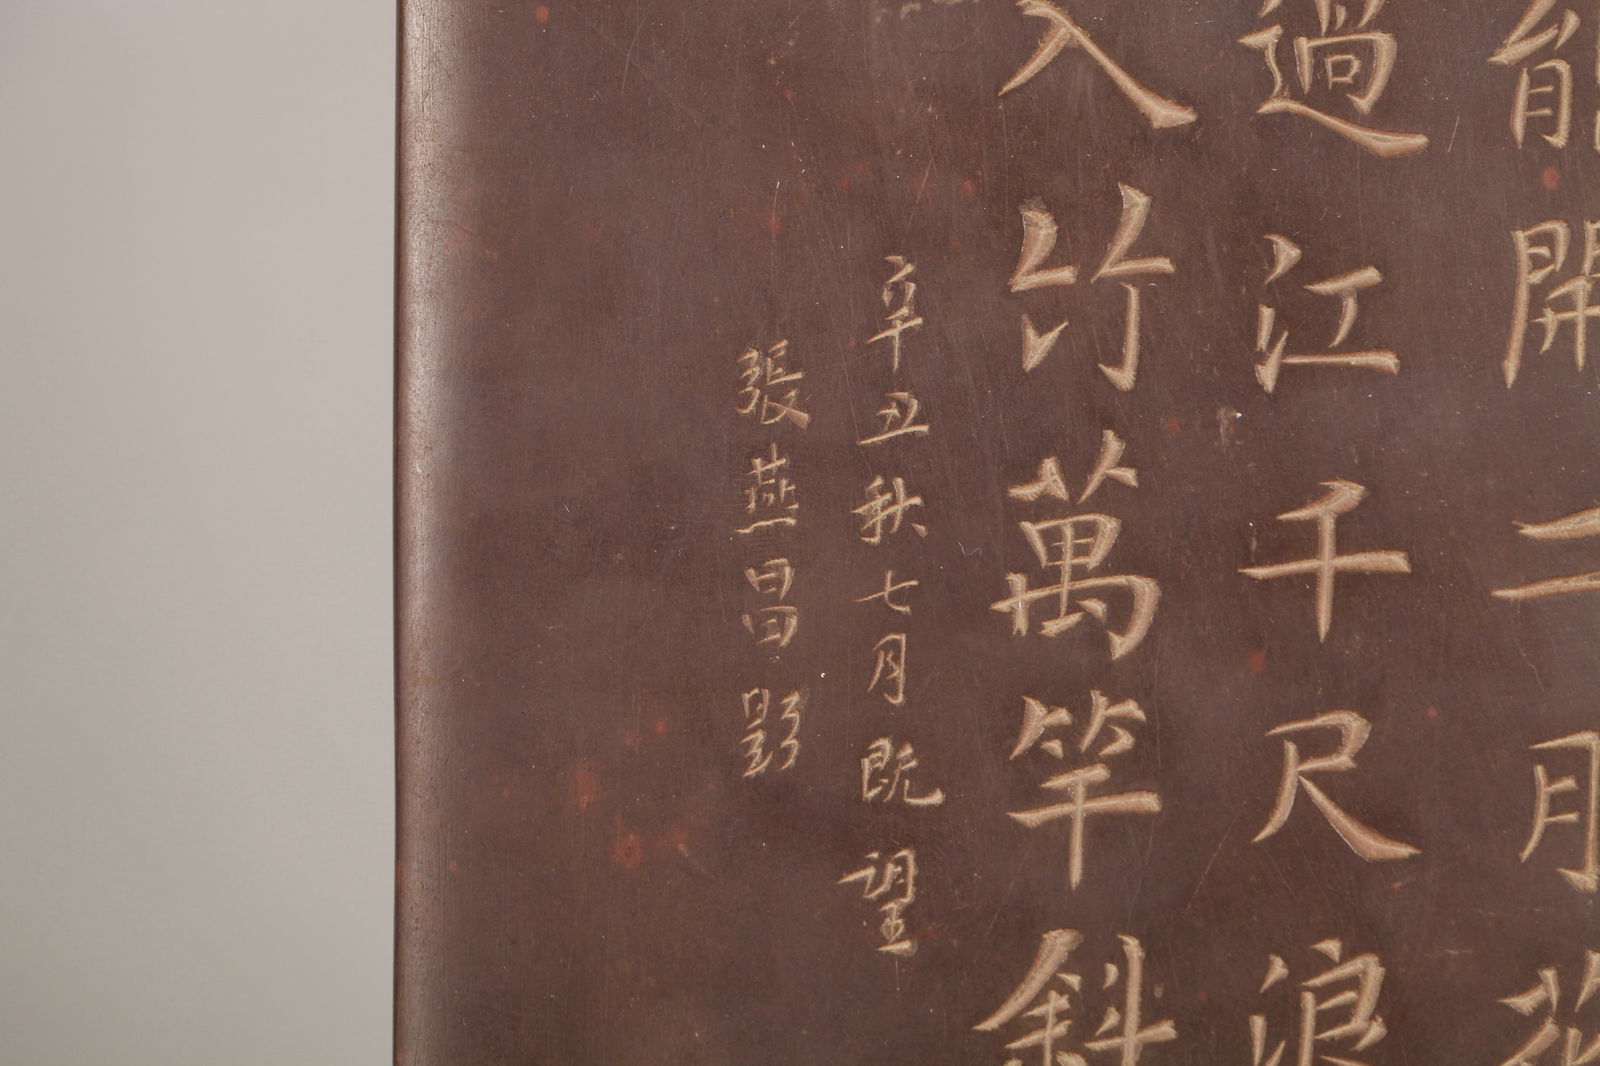 能開二月花
過江千尺浪
入竹萬竿斜
辛丑秋七月既望
張燕昌